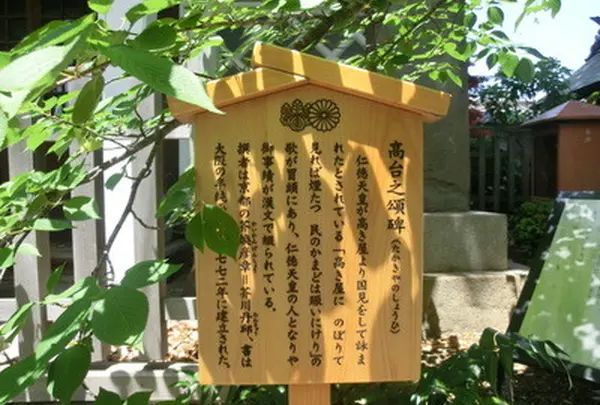 高台之頌碑(たかきやのしょうひ)
仁徳天皇が高き屋より国見をして詠ま
れたとされている「高き屋に のぼりて
見れば煙たつ 民のかまどは賑いにけり」の
歌が冒頭にあり、仁徳天皇の人となりや
御事績が漢文で綴られている。
撰者は京都の芥煥彦章=芥川丹邱、書は
大阪の 七七二年に建立された。